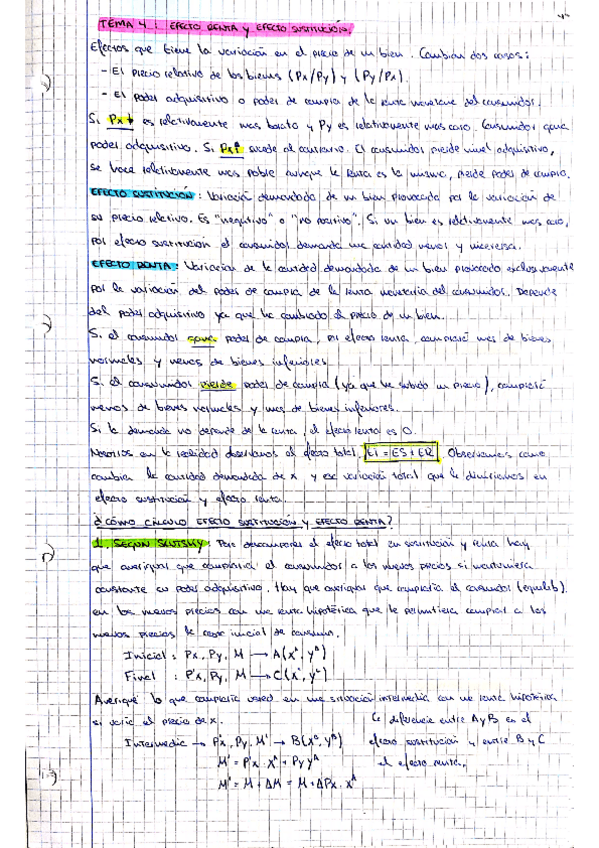 TEMA 4: EFECTO RENTA y EFECTO SUSTITUCIÓN.
Efectos que tiene la variación en el precio de un bien. Cambian dos cosas:
- El precio relativo de los bienes (Px/Py) y (Py/Px).
- El poder adquisitivo o poder de compra de la renta monetaria del consumidor.
Si Px↓ es relativamente mas barato y Py es relativamente mas caro. Consumidor gana
poder adquisitivo. Si Px↑ sucede al contrario. El consumidor pierde nivel adquisitivo,
se hace relativamente mas pobre aunque la renta es la misma, pierde poder de compra.
EFECTO SUSTITUCIÓN: Variación demandada de un bien provocada por la variación de
su precio relativo. Es "negativo" o "no positivo". Si un bien es relativamente mas caro,
por efecto sustitución el consumidor demanda una cantidad menor y viceversa.
EFECTO RENTA: Variación de la cantidad demandada de un bien provocado exclusivamente
por la variación del poder de compra de la renta monetaria del consumidor. Depende
del poder adquisitivo ya que ha cambiado el precio de un bien.
Si el consumidor gana poder de compra, por efecto renta, comprará mas de bienes
normales y menos de bienes inferiores.
Si el consumidor pierde poder de compra (ya que ha subido un precio), comprará
menos de bienes normales y mas de bienes inferiores.
Si la demanda no depende de la renta, el efecto renta es 0.
Nosotros en la realidad observamos el efecto total, ET = ES + ER. Observamos como
cambia la cantidad demandada de x y esa variación total que la dividimos en
efecto sustitución y efecto renta.
¿CÓMO CÁLCULO EFECTO SUSTITUCIÓN y EFECTO RENTA?
1. SEGÚN SLUTSKY: Para descomponer el efecto total en sustitución y renta hay
que averiguar que compraría el consumidor a los nuevos precios si mantuviera
constante su poder adquisitivo. Hay que averiguar que compraría el consumidor (equilib).
en los nuevos precios con una renta hipotética que le permitiera comprar a los
nuevos precios la cesta inicial de consumo.
Inicial: Px, Py, M → A(Xᴬ, yᴬ)
Final: P'x, Py, M → C(Xᶜ, yᶜ)
Averigüe lo que compraría usted en una situación intermedia con una renta hipotética
si varía el precio de x. La diferencia entre A y B en el
Intermedia → P'x, Py, M' → B(Xᴮ, yᴮ) efecto sustitución y entre B y C
M' = P'x · Xᴬ + Py yᴬ el efecto renta.
M' = M + ΔM = M + ΔPx · xᴬ